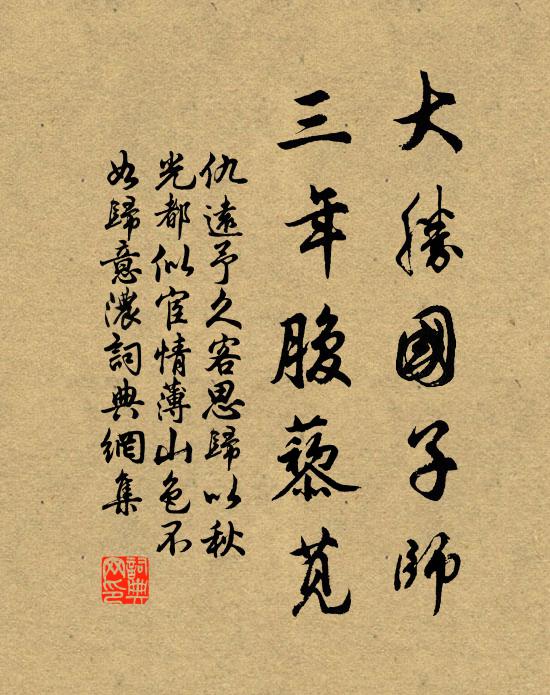 大勝國子師
三年腹藜莧
仇遠予久客思歸以秋
光都似宦情薄山色不
如歸意濃詞典網集
詞典
网印